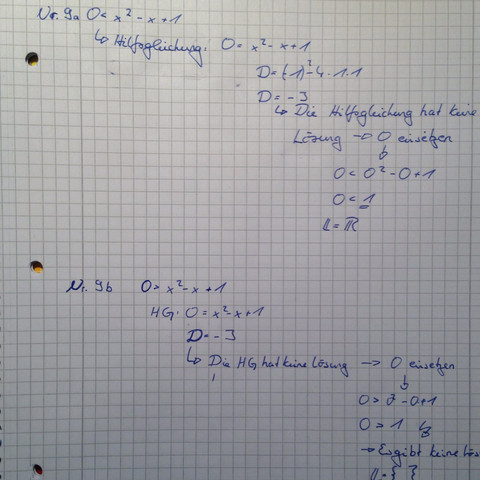 Nr. 9a 0 < x² - x + 1
↳ Hilfsgleichung: 0 = x² - x + 1
D = (-1)² - 4 · 1 · 1
D = - 3
↳ Die Hilfsgleichung hat keine
Lösung → 0 einsetzen
↓
0 < 0² - 0 + 1
0 < 1
𝕃 = ℝ
Nr. 9b 0 > x² - x + 1
HG: 0 = x² - x + 1
D = - 3
↳ Die HG hat keine Lösung → 0 einsetzen
↓
0 > 0² - 0 + 1
0 > 1 ↯
→ Es gibt keine Lös
𝕃 = { }